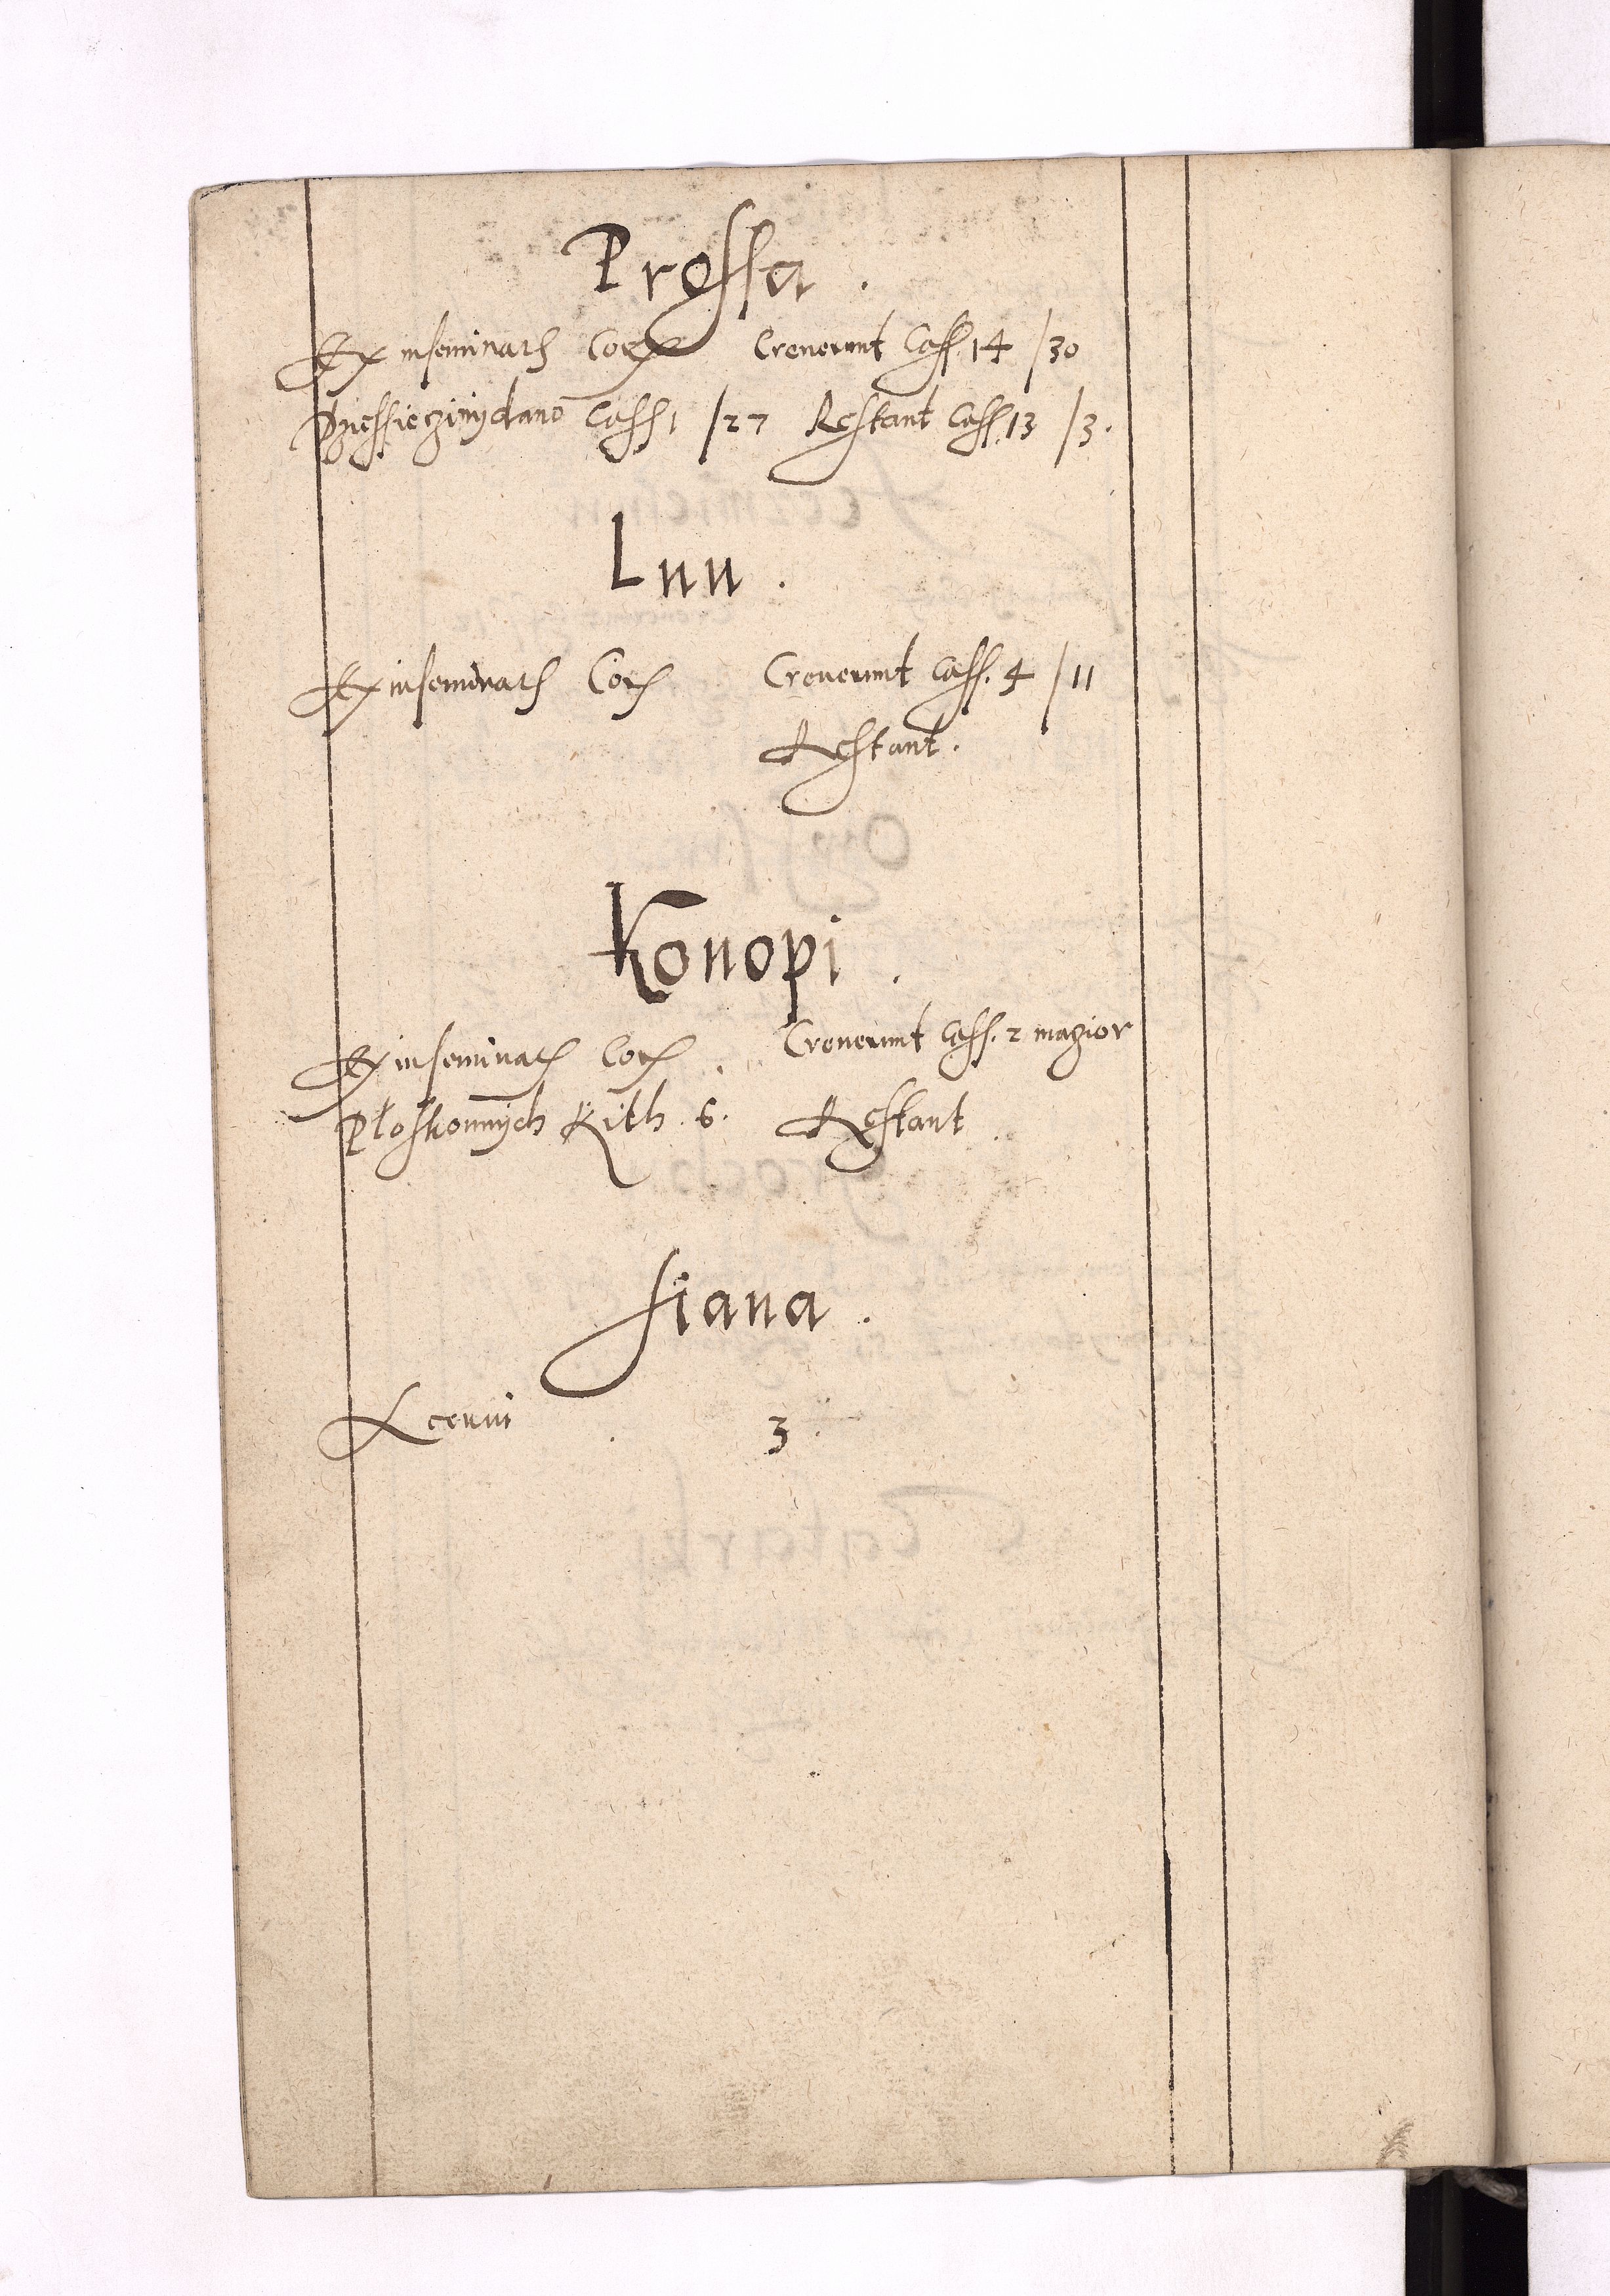 Prossa .
Ex inseminatis Coris Creverunt Cass. 14 /30
Dziessieczinÿ dano Cass 1 /27 Restant Cass. 13 /3.
Lnu .
Ex inseminatis Coris Creverunt Cass. 4 /11
Restant .
Konopi .
Ex inseminatis Coris . Creverunt Cass. 2 magior
Płoskonnÿch Kith . 6 . Restant .
Siana .
Acervi . 3 .